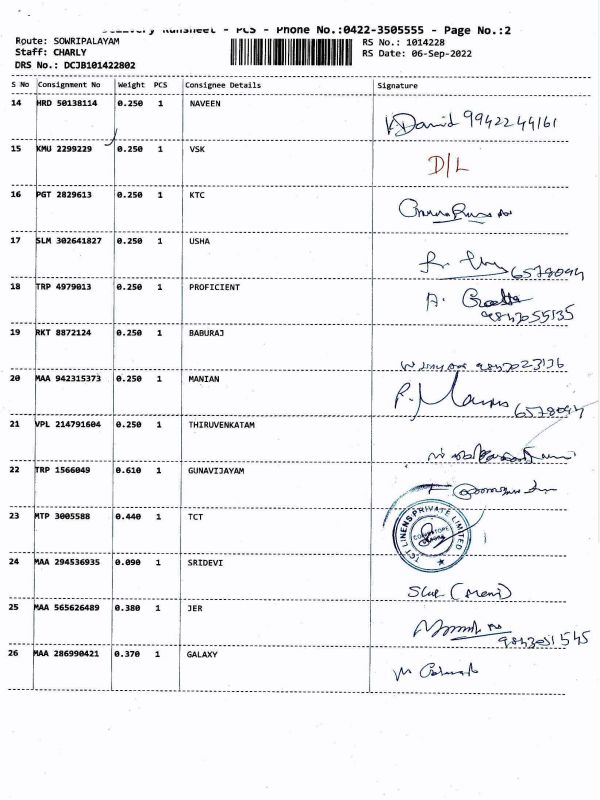 Delivery Runsheet - PCS - Phone No.:0422-3505555 - Page No.:2
Route: SOWRIPALAYAM
RS No.: 1014228
Staff: CHARLY
RS Date: 06-Sep-2022
DRS No.: DCJB101422802
S No Consignment No Weight PCS Consignee Details Signature
14 HRD 50138114 0.250 1 NAVEEN
K David 9942244161
15 KMU 2299229 0.250 1 VSK
D/L
16 PGT 2829613 0.250 1 KTC
17 SLM 302641827 0.250 1 USHA
6578094
18 TRP 4979013 0.250 1 PROFICIENT
A.
9847055135
19 RKT 8872124 0.250 1 BABURAJ
20 MAA 942315373 0.250 1 MANIAN
6578094
21 VPL 214791604 0.250 1 THIRUVENKATAM
22 TRP 1566049 0.610 1 GUNAVIJAYAM
23 MTP 3005588 0.440 1 TCT
TCT LINENS PRIVATE LIMITED
24 MAA 294536935 0.090 1 SRIDEVI
25 MAA 565626489 0.380 1 JER
9843051545
26 MAA 286990421 0.370 1 GALAXY